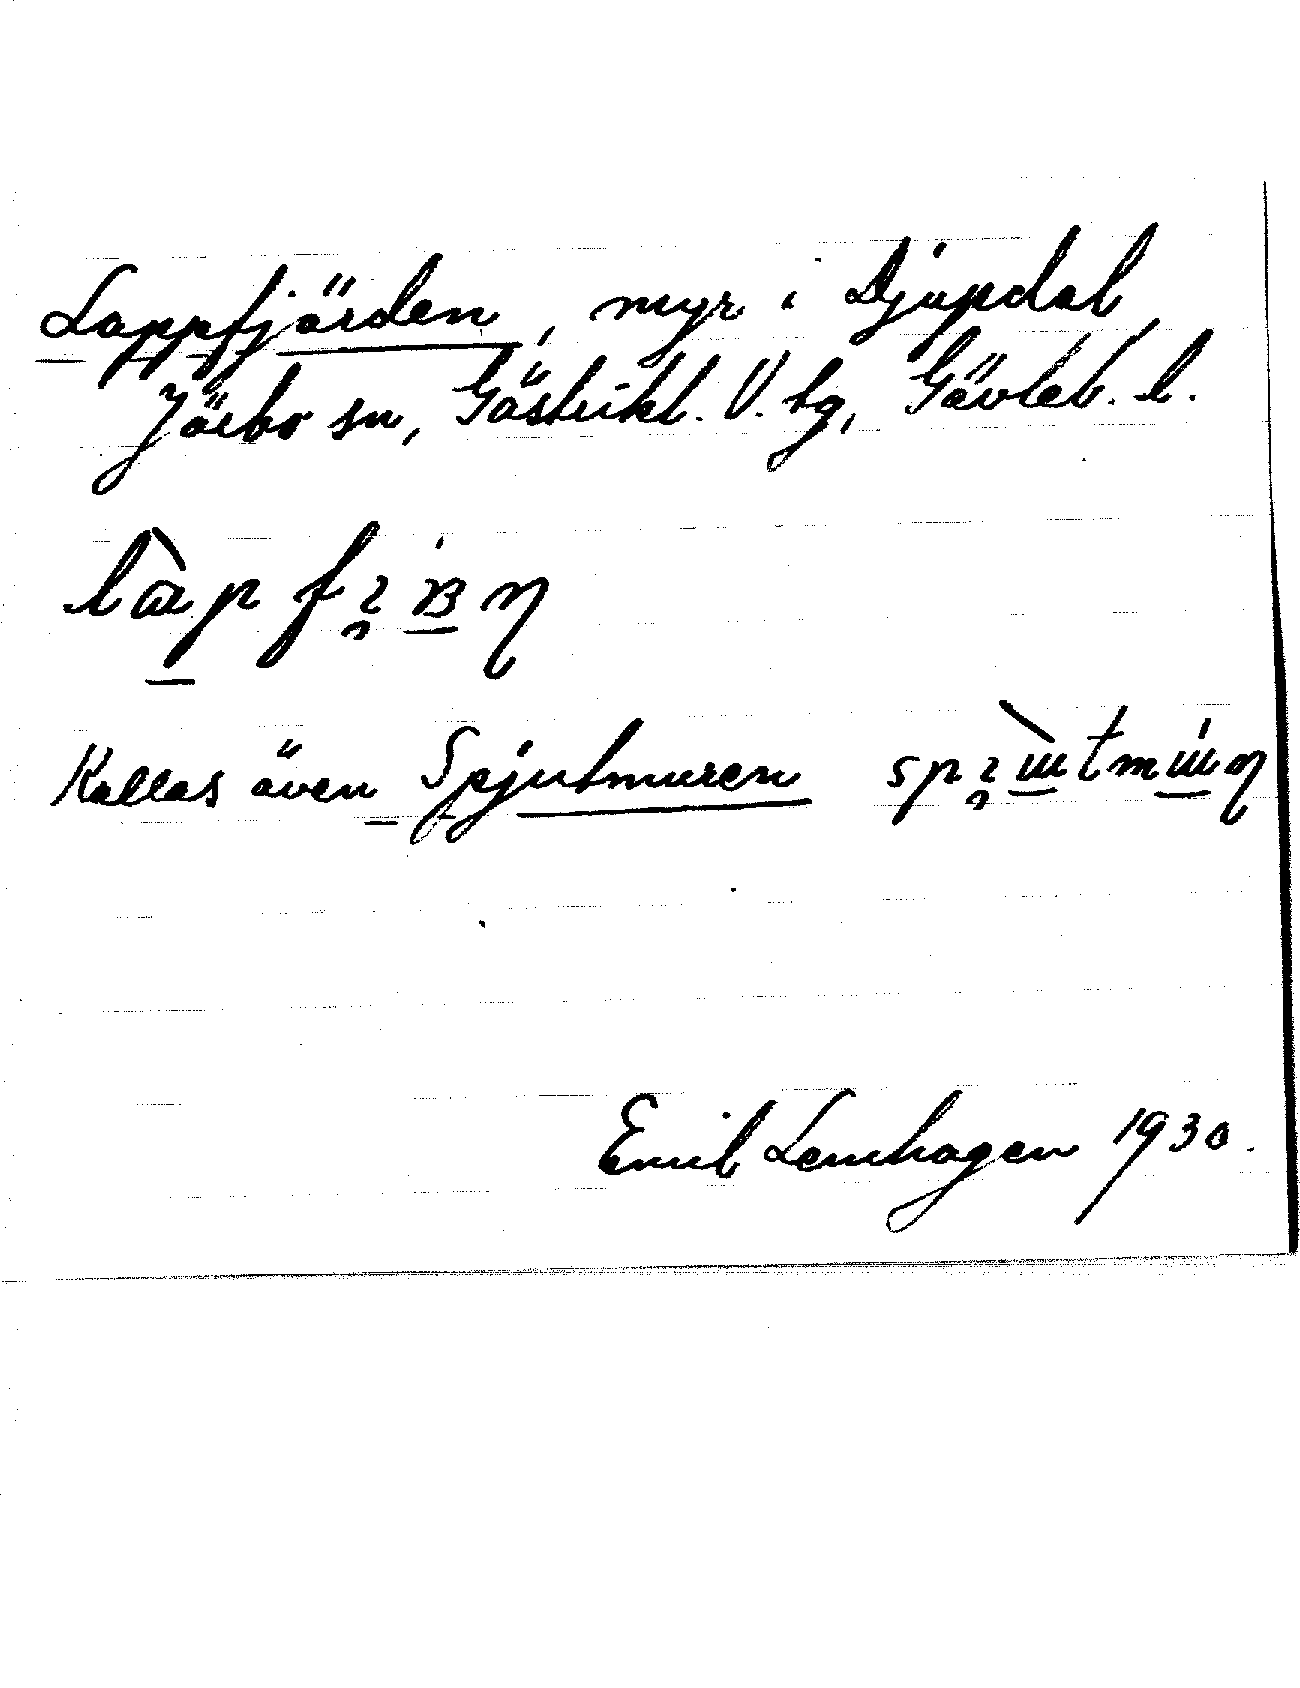 Lappfjärden, myr i Djupdal,
Järbo sn, Gästrikl. V. tg, Gävleb. l.
Kallas även Spjutmuren
Emil Lenhagen 1930.